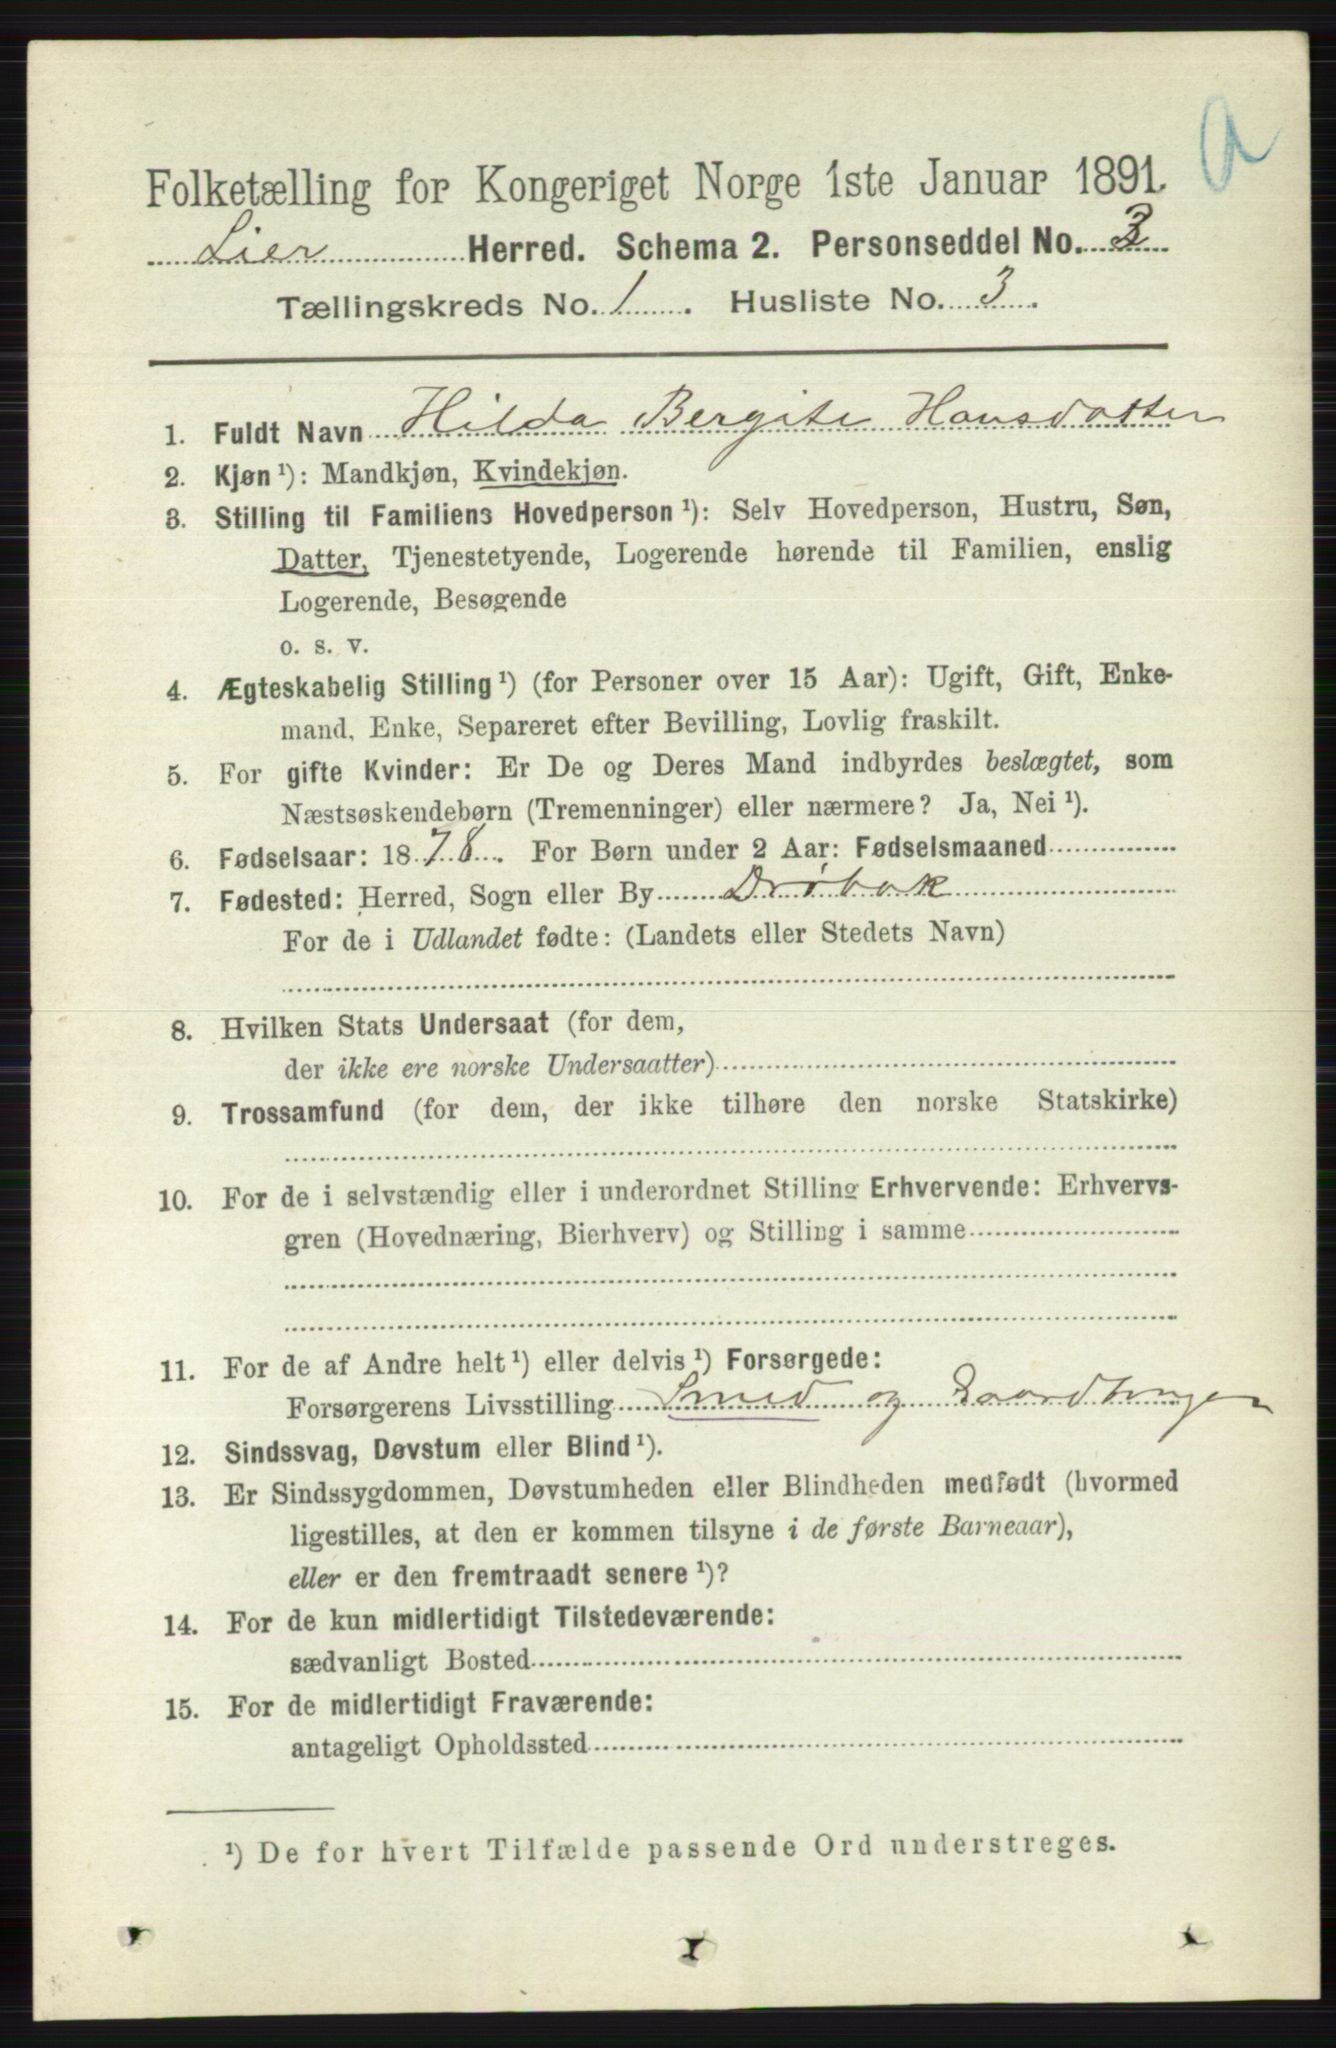 a
Folketælling for Kongeriget Norge 1ste Januar 1891.
Lier Herred. Schema 2. Personseddel No. 3
Tællingskreds No. 1. Husliste No. 3.
1. Fuldt Navn Hilda Bergite Hansdatter
2. Kjøn ¹): Mandkjøn, Kvindekjøn.
3. Stilling til Familiens Hovedperson ¹): Selv Hovedperson, Hustru, Søn,
Datter, Tjenestetyende, Logerende hørende til Familien, enslig
Logerende, Besøgende
o. s. v.
4. Ægteskabelig Stilling ¹) (for Personer over 15 Aar): Ugift, Gift, Enke-
mand, Enke, Separeret efter Bevilling, Lovlig fraskilt.
5. For gifte Kvinder: Er De og Deres Mand indbyrdes beslægtet, som
Næstsøskendebørn (Tremenninger) eller nærmere? Ja, Nei ¹).
6. Fødselsaar: 1878. For Børn under 2 Aar: Fødselsmaaned
7. Fødested: Herred, Sogn eller By Drøbak
For de i Udlandet fødte: (Landets eller Stedets Navn)
8. Hvilken Stats Undersaat (for dem,
der ikke ere norske Undersaatter)
9. Trossamfund (for dem, der ikke tilhøre den norske Statskirke)
10. For de i selvstændig eller i underordnet Stilling Erhvervende: Erhvervs-
gren (Hovednæring, Bierhverv) og Stilling i samme
11. For de af Andre helt ¹) eller delvis ¹) Forsørgede:
Forsørgerens Livsstilling Smed og Gaardbruger
12. Sindssvag, Døvstum eller Blind ¹).
13. Er Sindssygdommen, Døvstumheden eller Blindheden medfødt (hvormed
ligestilles, at den er kommen tilsyne i de første Barneaar),
eller er den fremtraadt senere ¹)?
14. For de kun midlertidigt Tilstedeværende:
sædvanligt Bosted
15. For de midlertidigt Fraværende:
antageligt Opholdssted
¹) De for hvert Tilfælde passende Ord understreges.